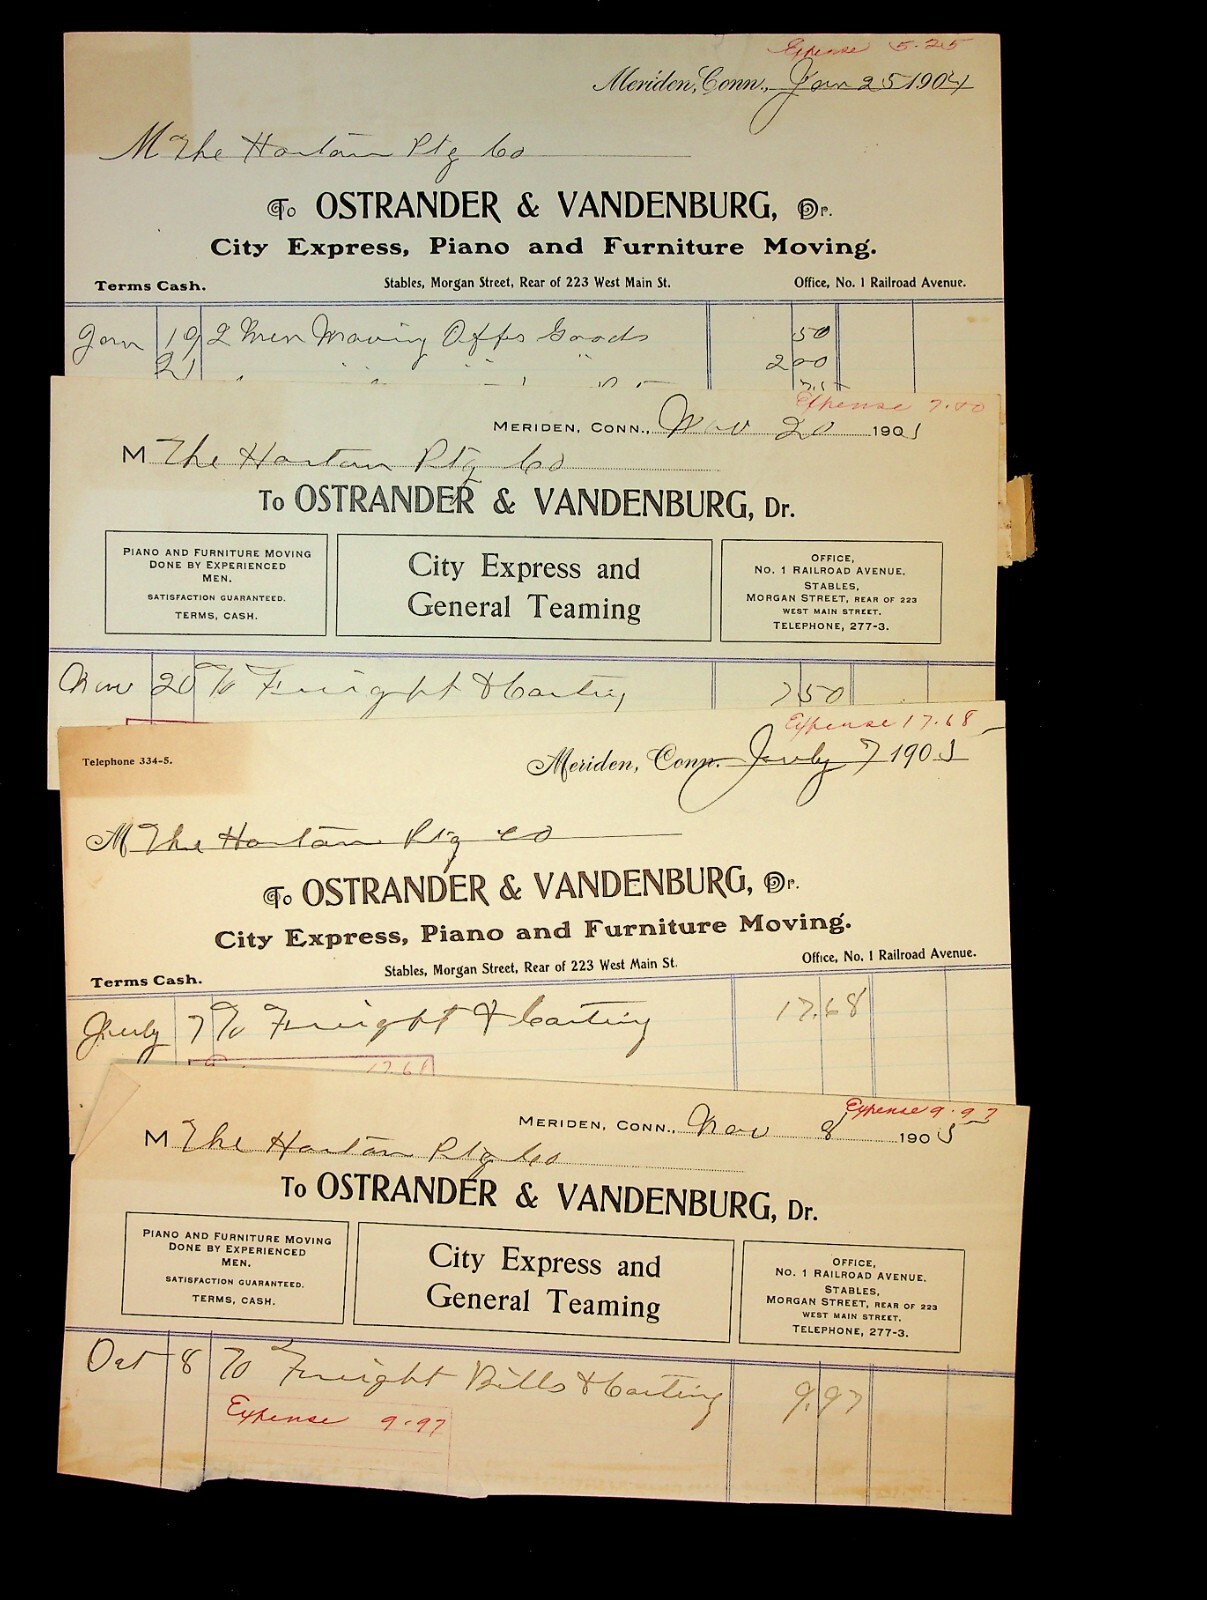 Expense 5.25
Meriden, Conn., Jan 25 1904
M The Horton Ptg Co
To OSTRANDER & VANDENBURG, Dr.
City Express, Piano and Furniture Moving.
Terms Cash. Stables, Morgan Street, Rear of 223 West Main St. Office, No. 1 Railroad Avenue.
Jan 19 2 Men Moving Goods 50
21 2 00
Expense 7.50
MERIDEN, CONN., Nov 20 1903
M The Horton Ptg Co
To OSTRANDER & VANDENBURG, Dr.
PIANO AND FURNITURE MOVING
DONE BY EXPERIENCED
MEN.
SATISFACTION GUARANTEED.
TERMS, CASH.
City Express and
General Teaming
OFFICE,
NO. 1 RAILROAD AVENUE.
STABLES,
MORGAN STREET, REAR OF 223
WEST MAIN STREET.
TELEPHONE, 277-3.
Nov 20 To Freight & Carting 7 50
Expense 17.68
Telephone 334-5.
Meriden, Conn. July 7 1903
M The Horton Ptg Co
To OSTRANDER & VANDENBURG, Dr.
City Express, Piano and Furniture Moving.
Terms Cash. Stables, Morgan Street, Rear of 223 West Main St. Office, No. 1 Railroad Avenue.
July 7 To Freight & Carting 17.68
17.68
Expense 9.97
MERIDEN, CONN., Nov 8 1903
M The Horton Ptg Co
To OSTRANDER & VANDENBURG, Dr.
PIANO AND FURNITURE MOVING
DONE BY EXPERIENCED
MEN.
SATISFACTION GUARANTEED.
TERMS, CASH.
City Express and
General Teaming
OFFICE,
NO. 1 RAILROAD AVENUE.
STABLES,
MORGAN STREET, REAR OF 223
WEST MAIN STREET.
TELEPHONE, 277-3.
Oct 8 To Freight Bills & Carting 9.97
Expense 9.97